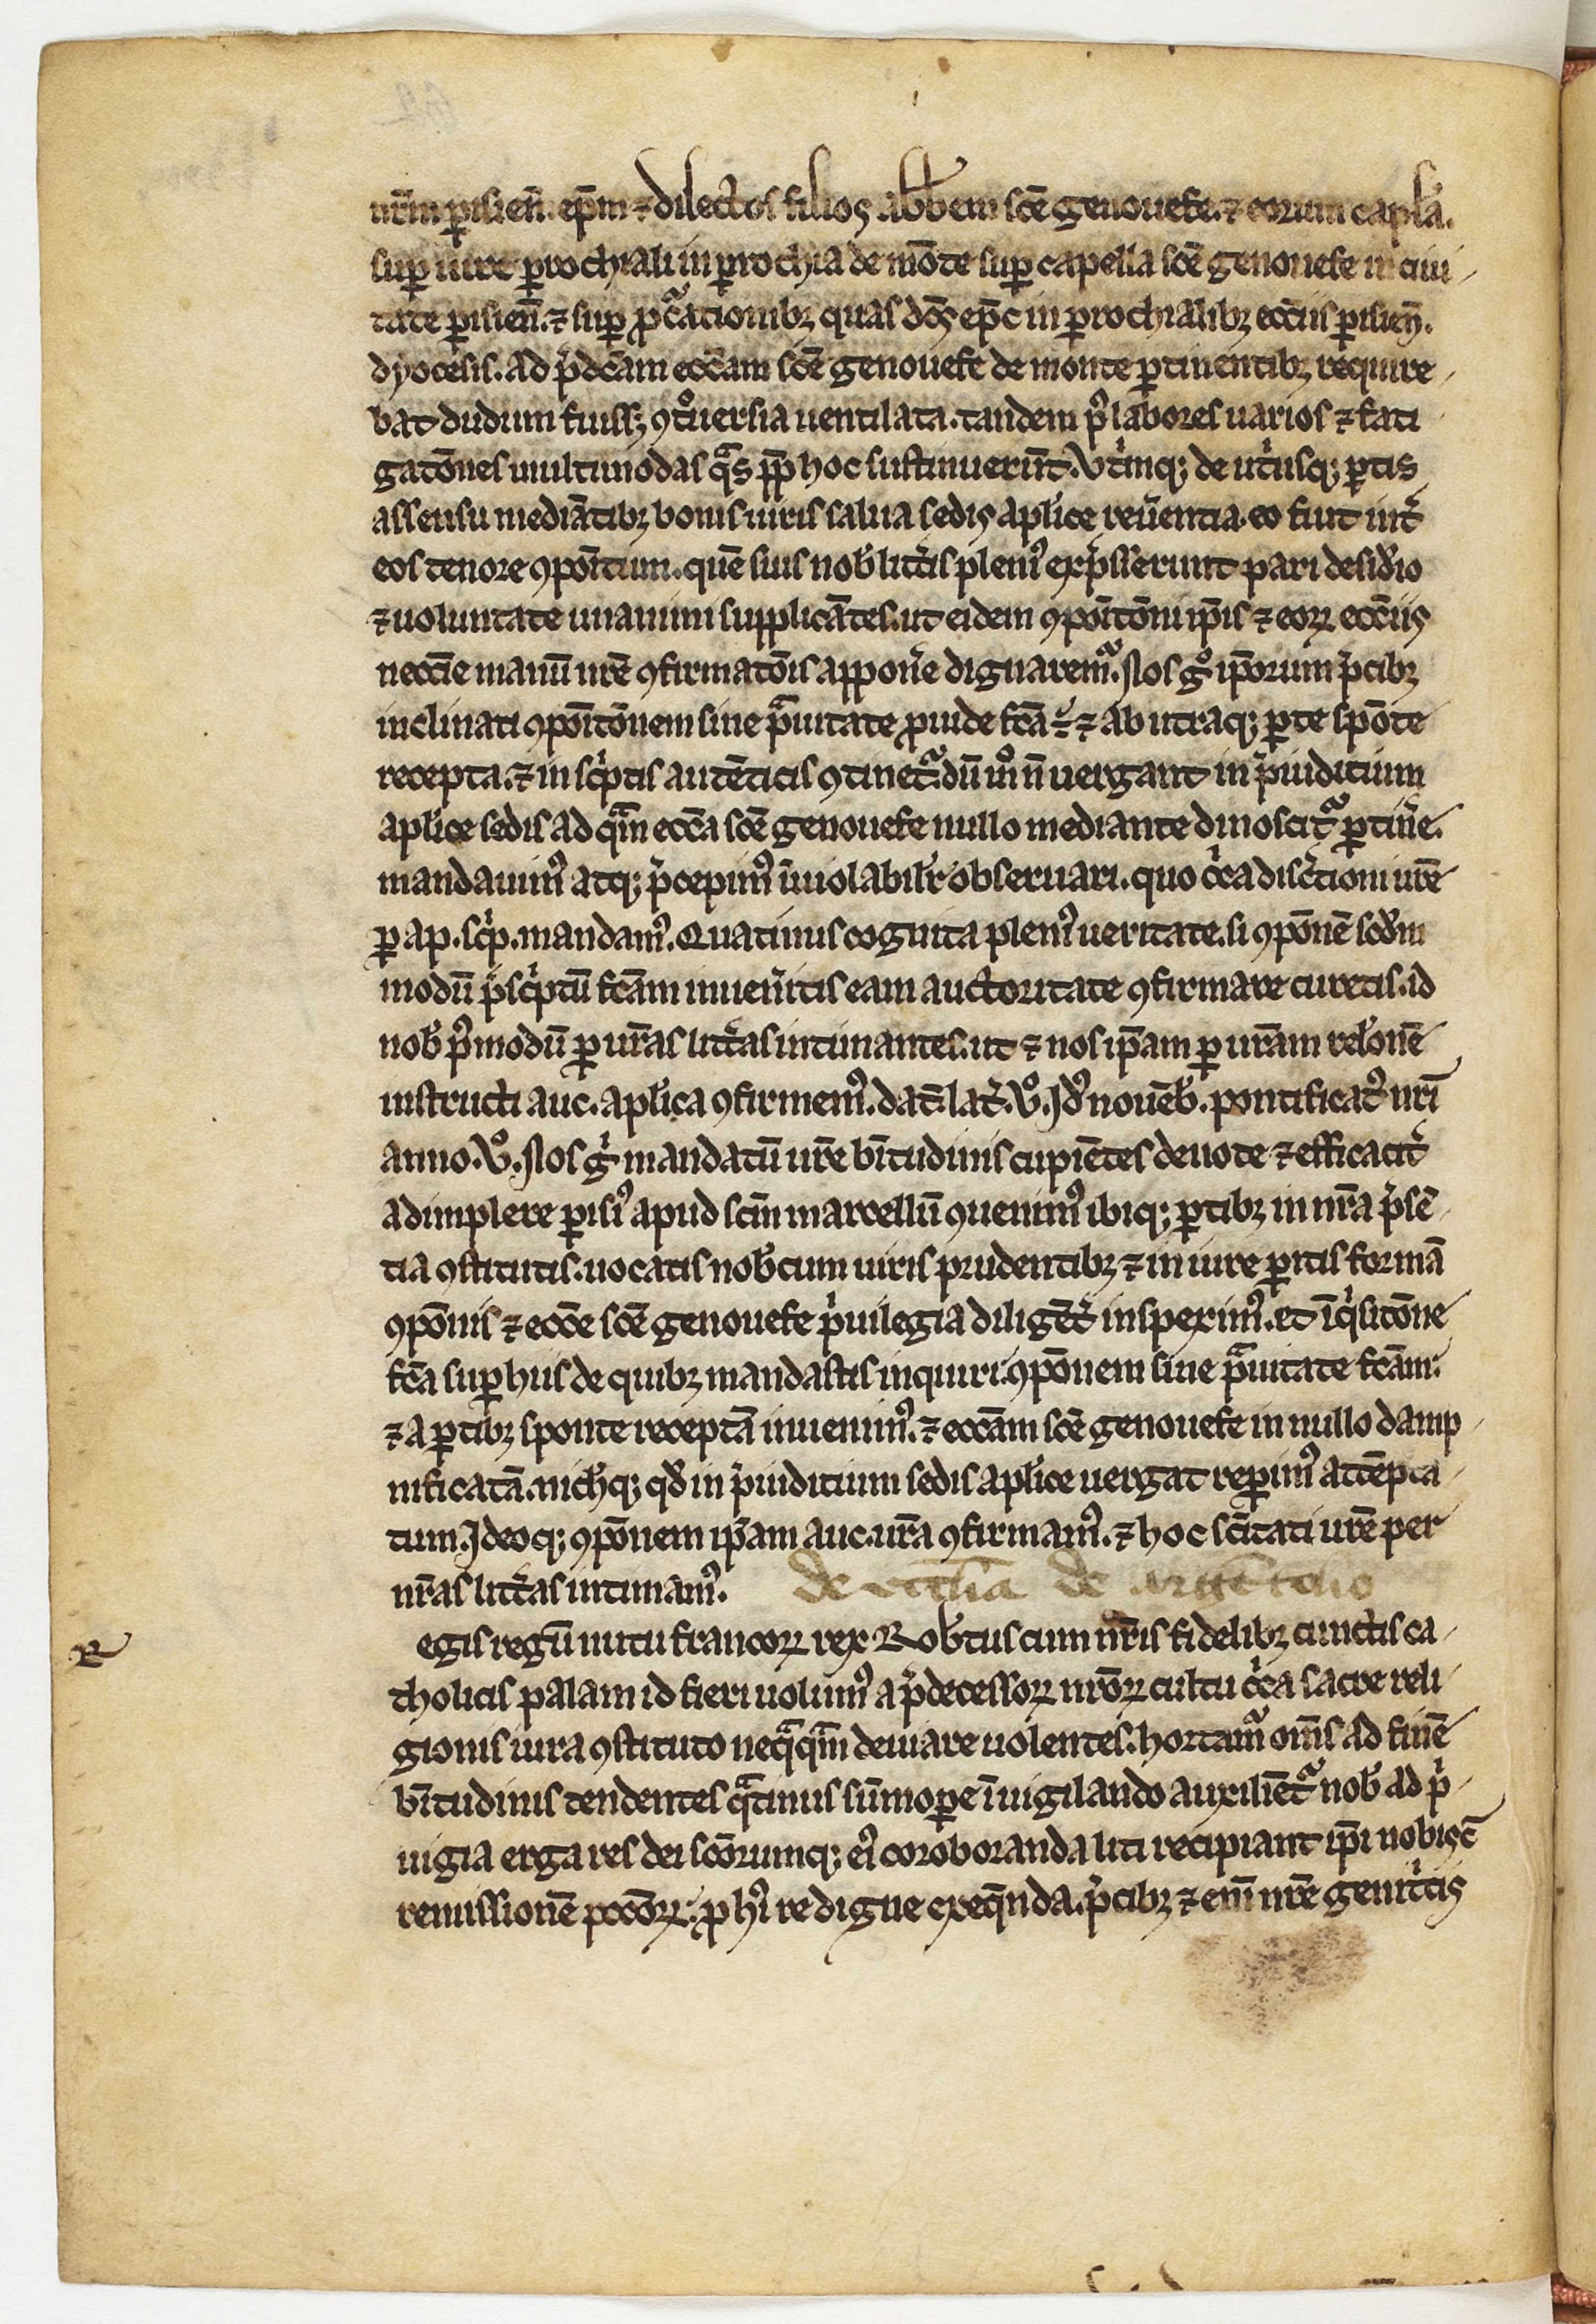 nr̄m parisien̄. ep̄m ⁊ dilectos filios abb̄em sc̄e genouefe. ⁊ eorum capl̓a.
sup̱ iure p̱rochiali in p̱rochia de mōte sup̱ capella sc̄e genouefe in ciui-
tate p̱isien̄. ⁊ sup̱ ꝓcᵃ̄ationibꝫ quas dc̄s ep̄c in p̱rochialibꝫ ecc̄iis p̱isien̄.
dyocesis. ad p̄dc̄am ecc̄am sc̄e genouefe de monte p̱tinentibꝫ require-
bat dudum fuissꝫ ꝯtᵒuersia uentilata. tandem pꝰ labores uarios ⁊ fati-
gatōnes multimodas qᵃs pp̄ hoc sustinuerūt. Vtⁱnqꝫ de utⁱusqꝫ p̱tis
assensu mediātibꝫ bonis uiris salua sedis apl̓ice reu̓entia. eo fuit int̓
eos tenore ꝯpoītum. quē suis nob̓ litt̓is pleniꝰ exp̓sserunt pari desid̓io
⁊ uoluntate unanimi supplicātes. ut eidem ꝯpoītōni ip̄is ⁊ eoꝝ ecc̄iis
neccīe manū nr̄e ꝯfirmatōis appon̓e dignaremᷣ. Nos gᵒ ip̄orum p̓cibꝫ
inclinati ꝯpoītōnem sine pᵃuitate ꝓuide fc̄a ⁊ ab utraqꝫ p̱te spōte
recepta. ⁊ in scⁱptis autēticis ꝯtinetᷣ. dū mᵒ n̄ uergant in p̓iuditium
apl̓ice sedis ad qᵃm ecc̄a sc̄e genouefe nullo mediante dinoscitᷣ p̱tin̓e.
mandauimꝰ atqꝫ p̓cepimꝰ īuiolabilit̓ obseruari. quo cⁱca discⁱtioni ur̄e
p̱ ap. scⁱp. mandamꝰ. Quatinus cognita pleniꝰ ueritate. si ꝯpōnē scd̓m
modū p̓scⁱptū fc̄am inuen̓itis eam auctoritate ꝯfirmare curetis. id
nob̓ pꝰmodū p̱ ur̄as litt̓as intimantes. ut ⁊ nos ip̄am p̱ ur̄am rel̓onē
instructi auc. apl̓ica ꝯfirmemꝰ. dat̄. lat̓. vᵒ. Jdꝰ nouēb̓. pontificatꝰ nr̄i
anno. vᵒ. Nos gⁱ mandatū ur̄e b̄itudinis cupiētes deuote ⁊ efficacit̓
adimplere p̱isiꝰ apud sc̄m marcellū ꝯuenimꝰ ibiqꝫ p̱tibꝫ in nr̄a p̓sē-
tia ꝯstitutis. uocatis nob̓cum uiris prudentibꝫ ⁊ in iure p̱itis formā
ꝯpōnis ⁊ ecc̄e sc̄e genouefe p̓uilegia diligēt̓ inspeximꝰ. et īqⁱsitōne
fc̄a sup̱ hiis de quibꝫ mandastis inquiri. ꝯpōnem sine pᵃuitate fc̄am.
⁊ a p̱tibꝫ sponte receptā inuenimꝰ. ⁊ ecc̄am sc̄e genouefe in nullo damp-
nificatā. nich̓qꝫ qd̓ in p̓iuditium sedis apl̓ice uergat rep̱imꝰ attēpta-
tum. Jdeoqꝫ ꝯpōnem ip̄am auc. ur̄a ꝯfirmamꝰ. ⁊ hoc sc̄itati ur̄e per
nr̄as litt̓as intimamꝰ. de ecc̄lia de argētolio
R egis regū nutu francoꝝ rex Rob̓tus cum nr̄is fidelibꝫ cunctis ca-
tholicis palam id fieri uolumꝰ a p̓decessoꝝ nr̄oꝝ cultu cⁱca sacre reli-
gionis iura ꝯstituto neqᵃqᵃm deuiare uolentes. hortamᷣ om̄s ad finē
b̄itudinis tendentes qᵃtinus sūmop̱e īuigilando auxiliētᷣ nob̓ ad p̓-
uigia erga res dei sc̄orumqꝫ eiꝰ coroboranda liti recipiant ip̄i nobisc̄
remissionē pc̄c̄oꝝ. ꝓ hⁱ re digne exeq̄nda. p̓cibꝫ ⁊ eni̅ nr̄e genitⁱcis